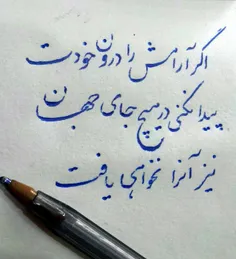 اگر آرامش را درون خودت
پیدا نکنی در هیچ جای جهان
نیز آنرا نخواهی یافت